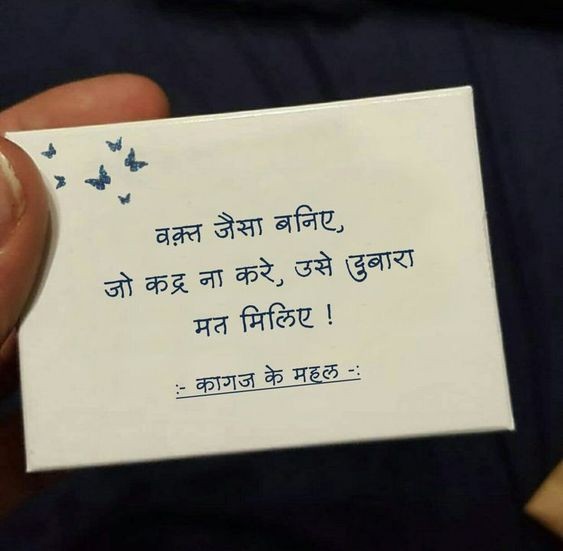 वक़्त जैसा बनिए,
जो कद्र ना करे, उसे दुबारा
मत मिलिए !
:- कागज के महल -: